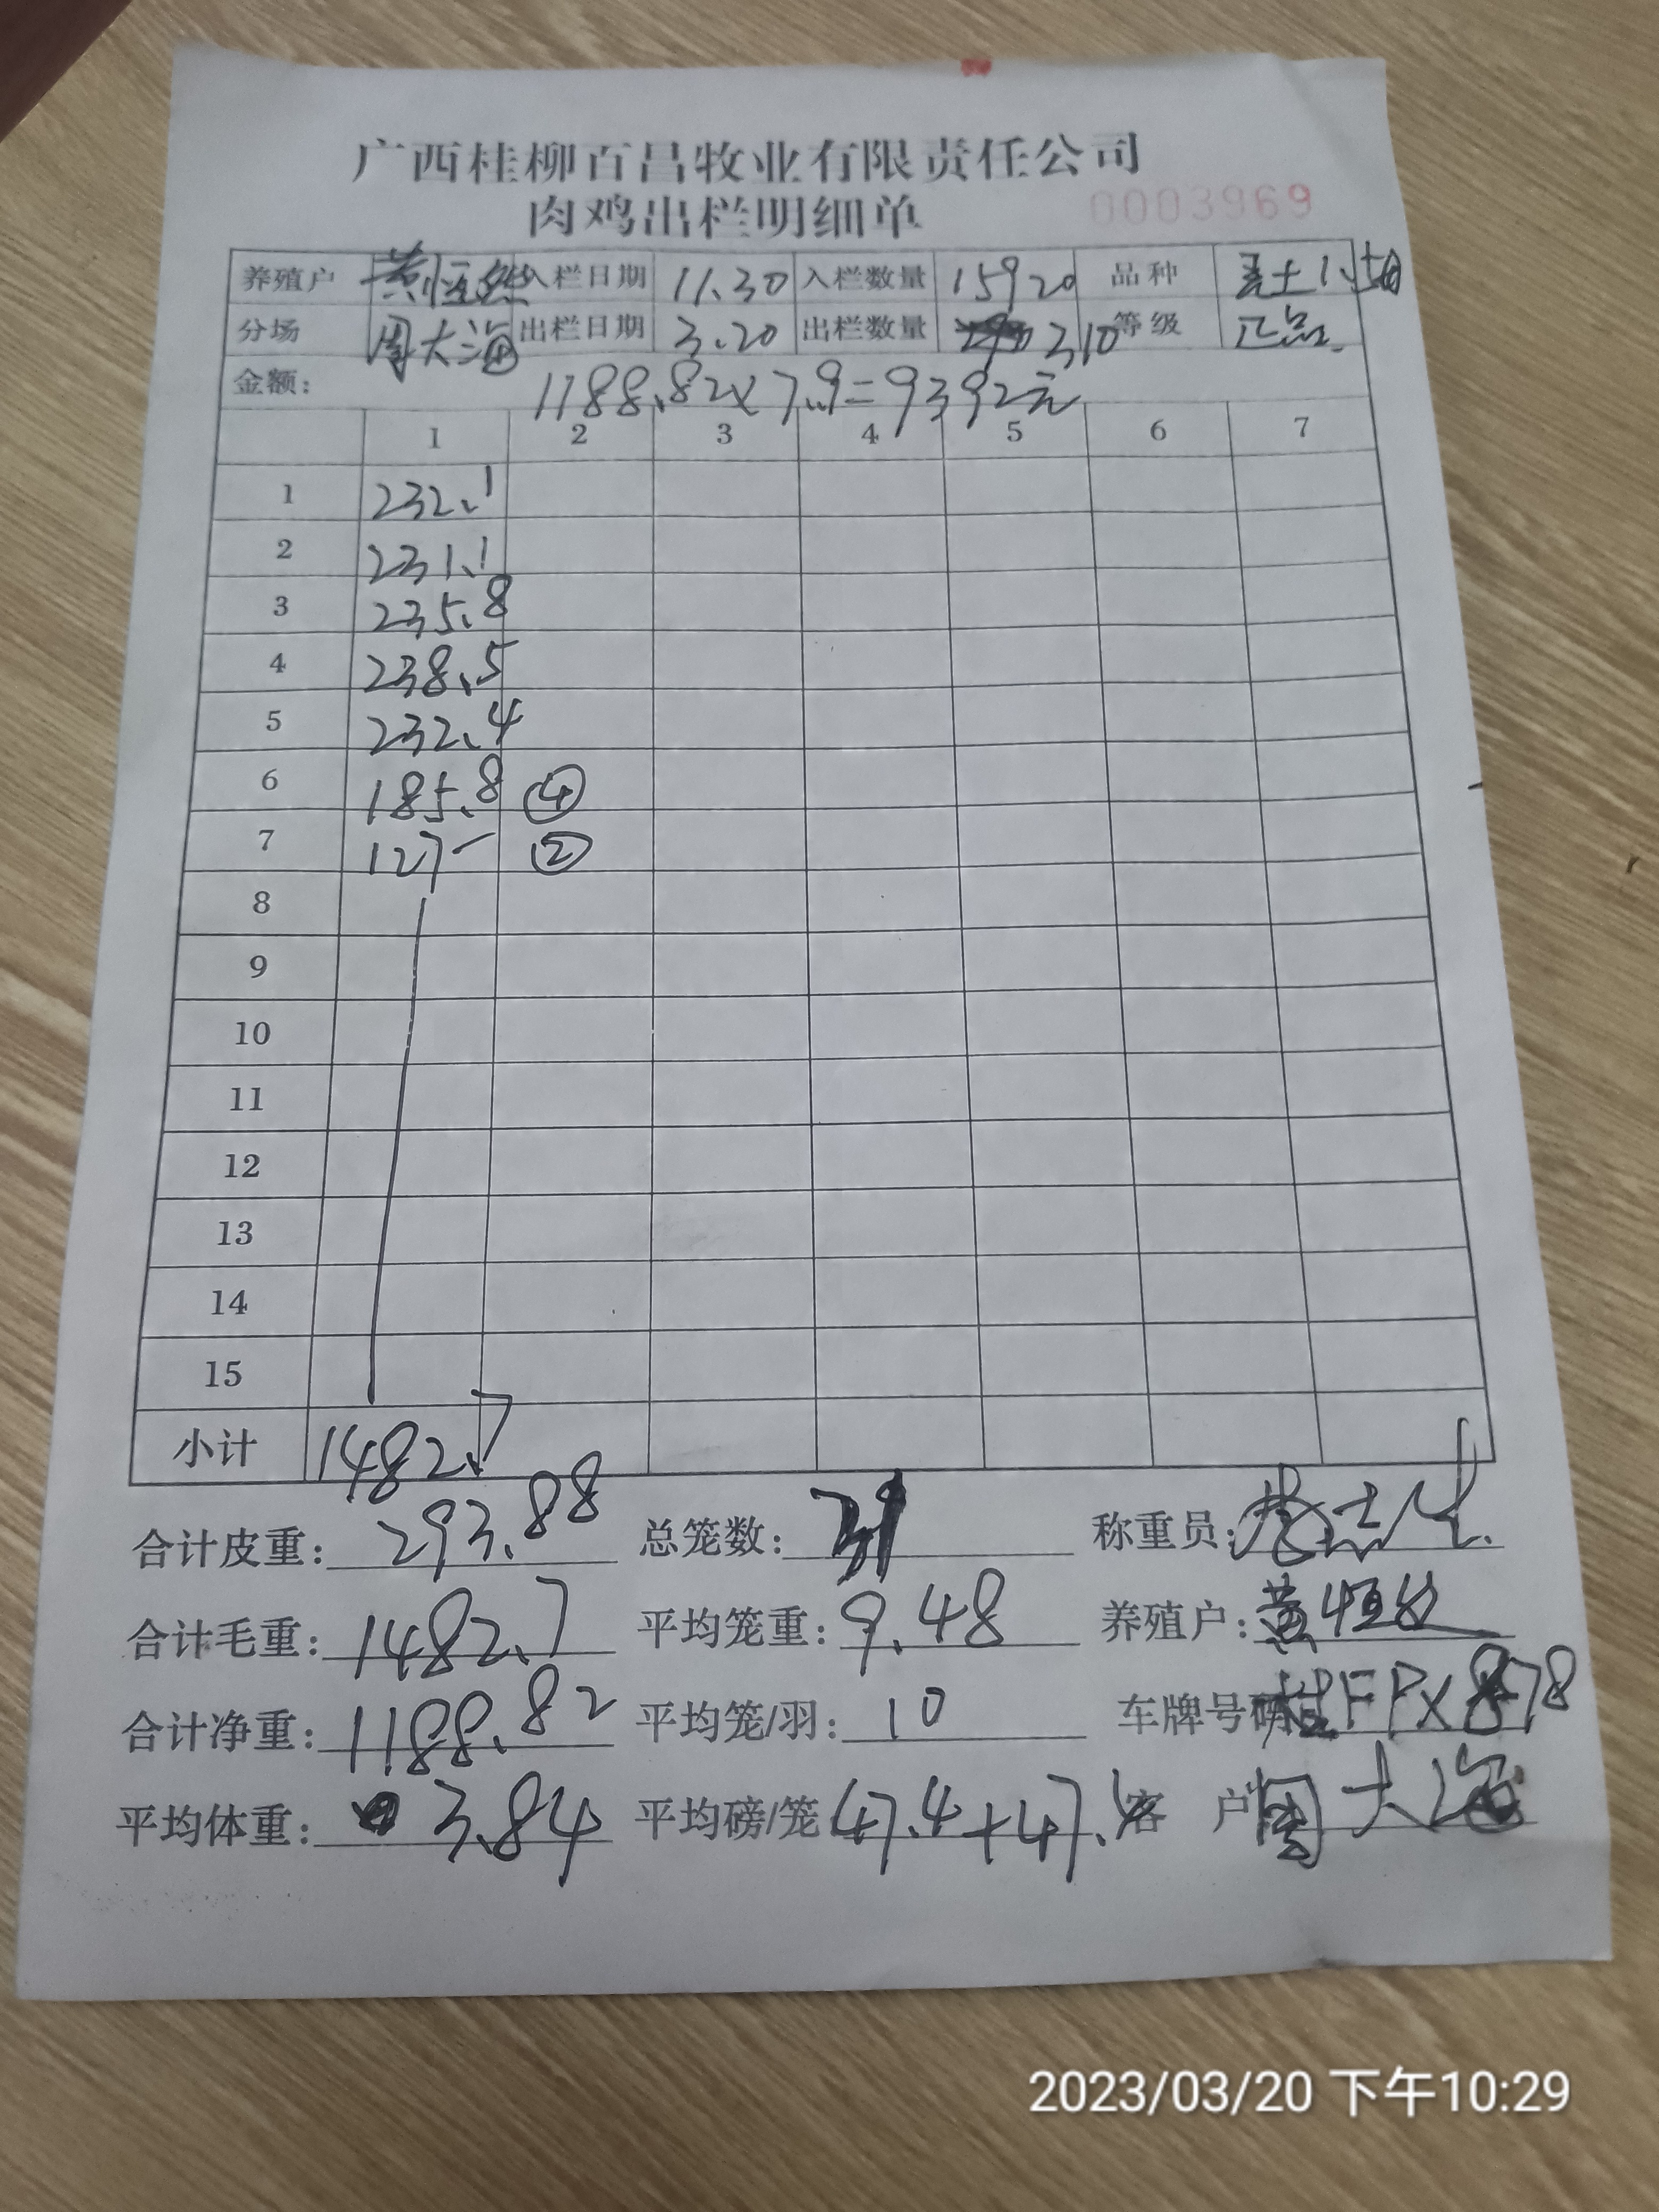 广西桂柳百昌牧业有限责任公司
肉鸡出栏明细单 0003969
养殖户 入栏日期 11.30 入栏数量 15920 品种
分场 周大海 出栏日期 3.20 出栏数量 310 等级 正品
金额: 1188.82×7.9=9392元
1 2 3 4 5 6 7
1 232.1
2 231.1
3 235.8
4 238.5
5 232.4
6 185.8 ④
7 127- ②
8
9
10
11
12
13
14
15
小计 1482.7
合计皮重: 293.88 总笼数: 31 称重员:
合计毛重: 1482.7 平均笼重: 9.48 养殖户: 黄恒
合计净重: 1188.82 平均笼/羽: 10 车牌号码 桂FPX878
平均体重: 3.84 平均磅/笼 47.4+47.4 客 户 周大海
2023/03/20 下午10:29